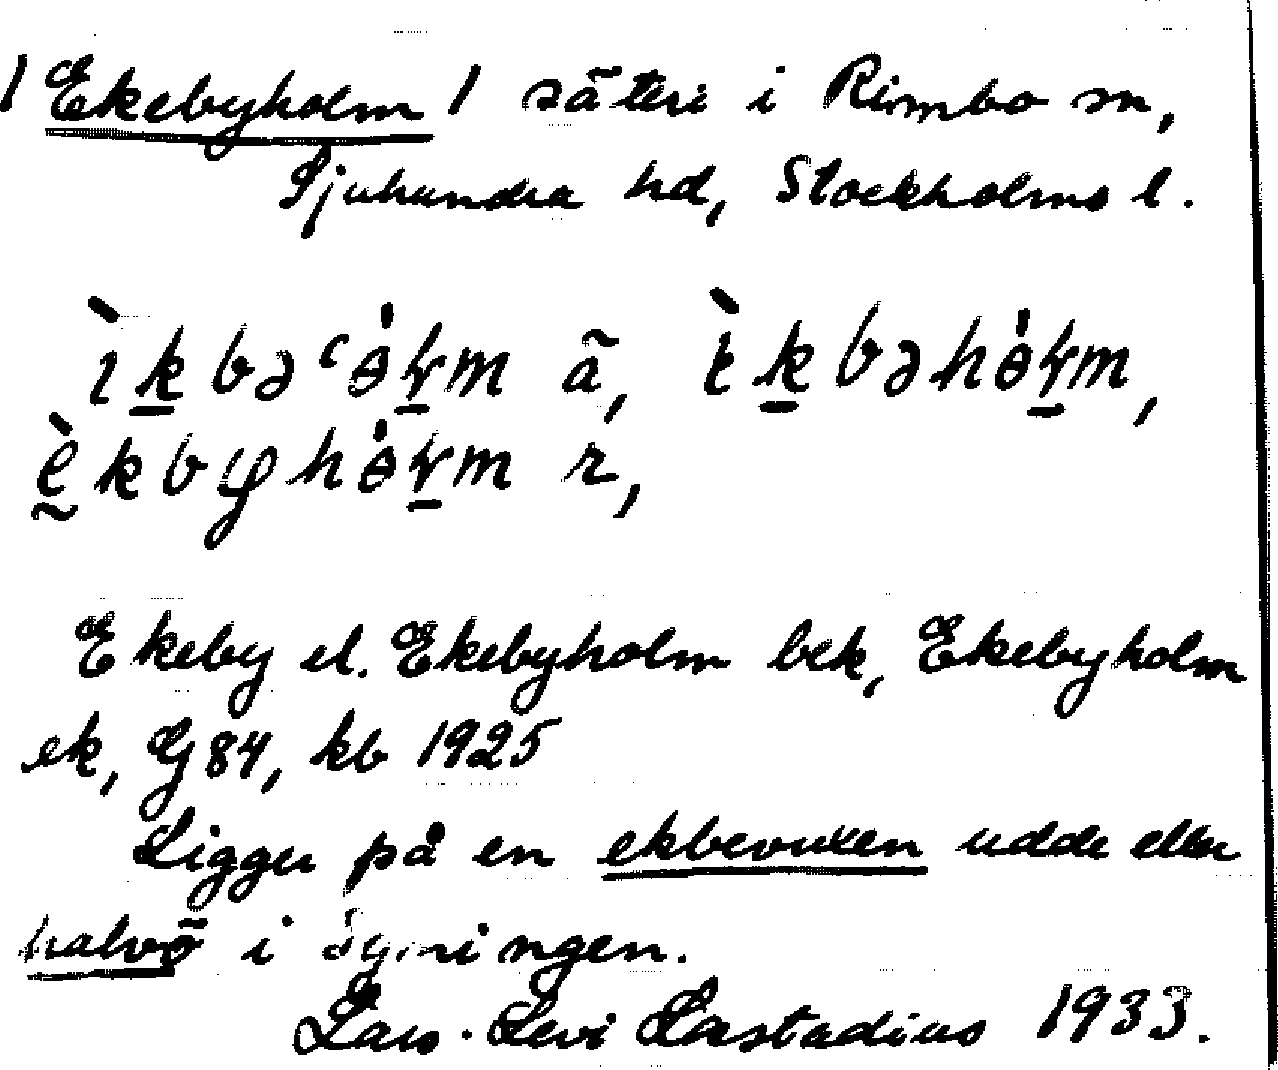 1 Ekebyholm 1 säteri i Rimbo sn,
Sjuhundra hd, Stockholms l.
ı̀kbəʽɵ́ɽm ä, ı̀kbəhɵ́ɽm,
èkbyhɵ́ɽm r,
Ekeby el. Ekebyholm bek, Ekebyholm
ek, G 84, kb 1925
Ligger på en ekbevuxen udde eller
halvö i Syningen.
Lars-Levi Læstadius 1933.